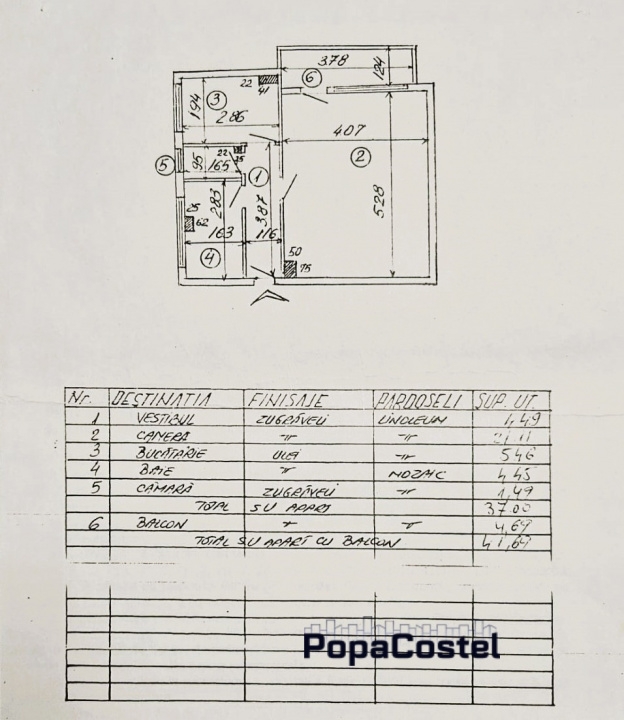 378
124
6
22
41
3
194
286
407
2
5
95
22
25
165
1
283
387
528
62
163
116
4
50
75
Nr. DESTINATIA FINISAJE PARDOSELI SUP. UT.
1 VESTIBUL ZUGRĂVELI LINOLEUM 4,49
2 CAMERA -"- -"- 21,11
3 BUCĂTĂRIE ULEI -"- 5,46
4 BAIE -"- MOZAIC 4,45
5 CĂMARĂ ZUGRĂVELI -"- 1,49
TOTAL SU APART 37,00
6 BALCON -"- -"- 4,69
TOTAL SU APART CU BALCON 41,69
PopaCostel